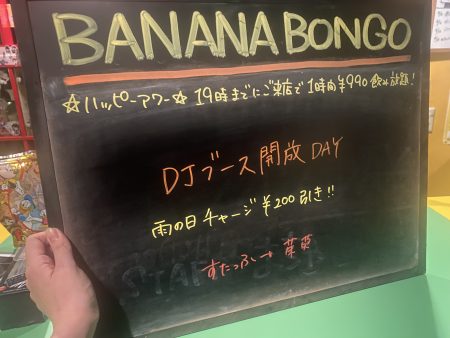 BANANA BONGO
☆ハッピーアワー☆ 19時までにご来店で1時間¥990飲み放題!
DJブース開放DAY
雨の日チャージ¥200引き!!
すたっふ→